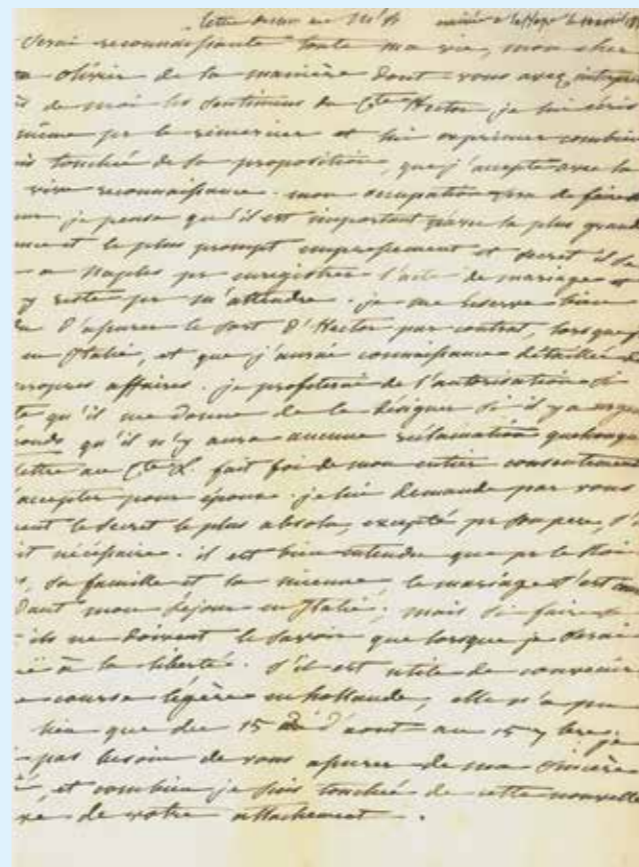 lettre de M^e B à la Haye le
serai reconnaissante toute ma vie, mon cher
olivier de la manière dont vous avez interpr
de moi les sentimens du C^te Hector, je lui écris
même pr le remercier et lui exprimer combien
touchée de sa proposition, que j'accepte avec la
vive reconnaissance. mon occupation sera de faire
je pense qu'il est important que la plus grand
et le plus prompt empressement et secret il se
a Naples pr enregistrer l'acte de mariage et
y reste pr m'attendre. je me reserve bien
d'assurer le sort d'Hector par contrat, lorsque j
en Italie, et que j'aurai connaissance détaillée de
propres affaires. je profiterai de l'autorisation si
qu'il me donne de le désigner si il y a urge
qu'il n'y aura aucune réclamation quelconque
lettre au C^te L. fait foi de mon entier consentement
accepter pour époux. je lui demande par vous
le secret le plus absolu, excepté pr son pere, s'i
nécessaire. il est bien entendu que pr le
sa famille et la mienne le mariage s'est
dant mon séjour en Italie; mais
ils ne doivent le savoir que lorsque je serai
à la liberté. s'il est utile de convenir
course légère en hollande, elle n'a pu
lieu que du 15 d'aout au 15 7bre. je
pas besoin de vous assurer de ma sincère
et combien je suis touchée de cette nouvelle
de votre attachement.